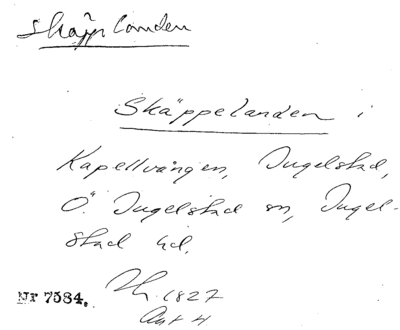 Skäpplanden
Skäppelanden i
Kapellvången, Ingelstad,
Ö. Ingelstad sn, Ingel-
stad hd.
Nr 7584. 1827
Akt 4